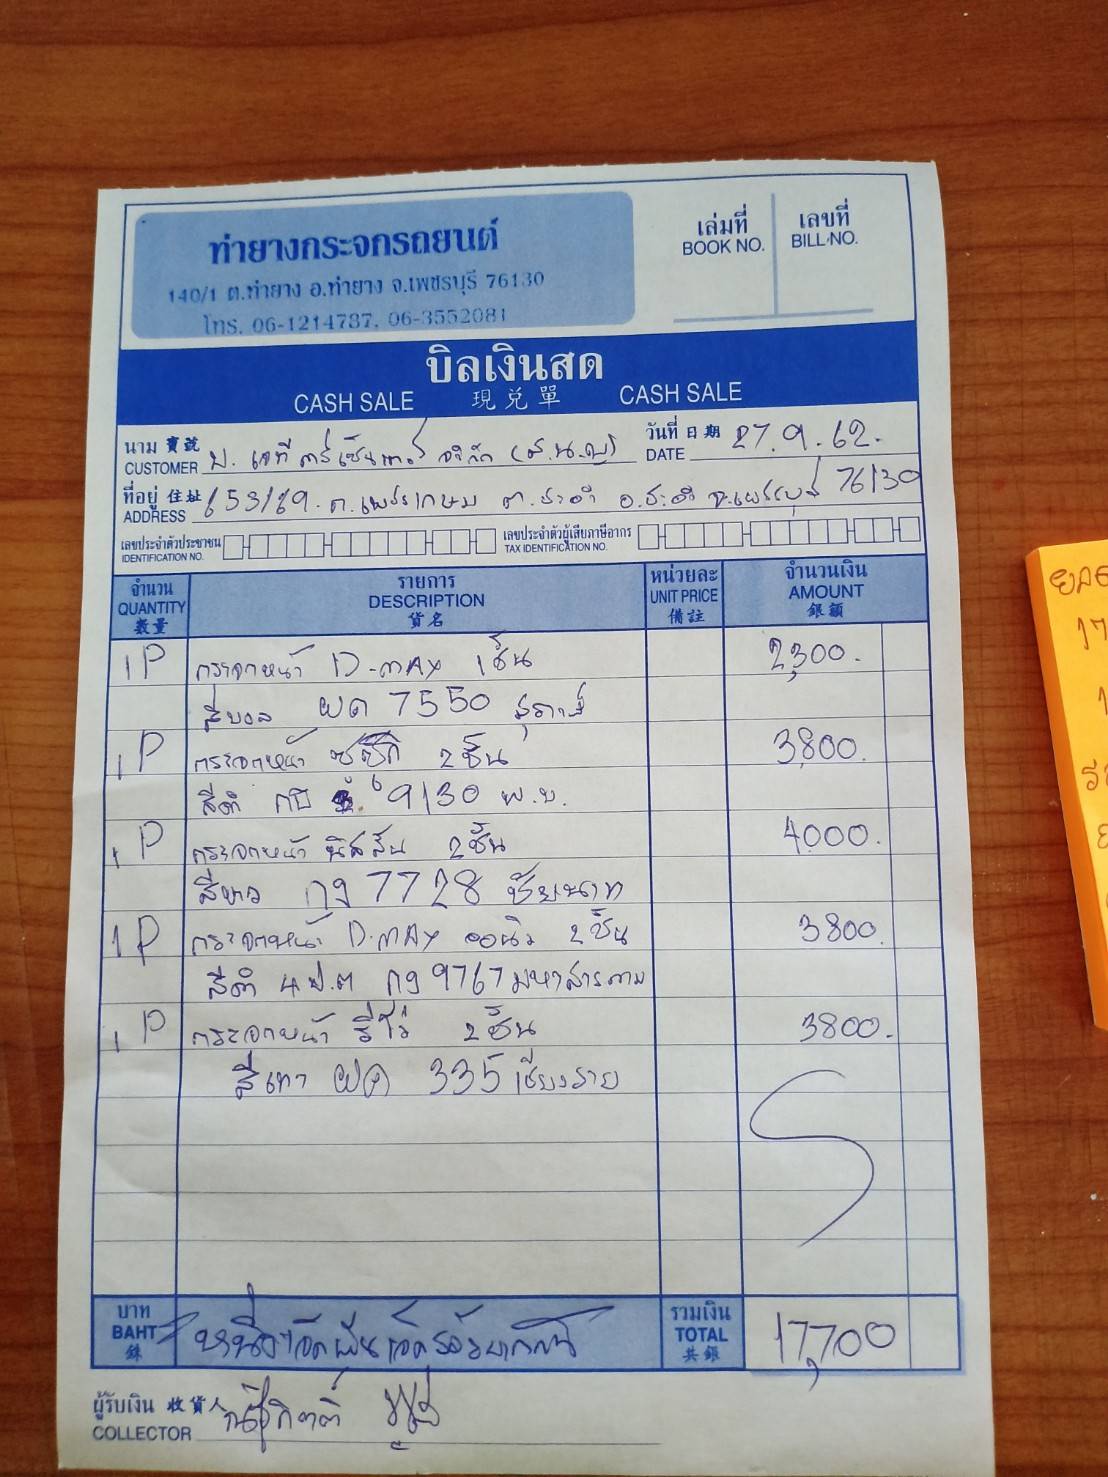 ท่ายางกระจกรถยนต์
140/1 ต.ท่ายาง อ.ท่ายาง จ.เพชรบุรี 76130
โทร. 06-1214787, 06-3552081
เล่มที่ เลขที่
BOOK NO. BILL NO.
บิลเงินสด
CASH SALE 現兑單 CASH SALE
นาม 寶號 วันที่ 日期
CUSTOMER บ. เจที คาร์เซ็นเตอร์ จำกัด (ส.น.ญ) DATE 27.9.62.
ที่อยู่ 住址
ADDRESS 653/69. ถ.เพชรเกษม ต.ชะอำ อ.ชะอำ จ.เพชรบุรี 76130
เลขประจำตัวประชาชน เลขประจำตัวผู้เสียภาษีอากร
IDENTIFICATION NO. TAX IDENTIFICATION NO.
จำนวน รายการ หน่วยละ จำนวนเงิน
QUANTITY DESCRIPTION UNIT PRICE AMOUNT
數量 貨名 備註 銀額
1P กระจกหน้า D-MAX 1ชั้น 2,300.
7550
1P กระจกหน้า 2ชั้น 3,800.
สีดำ 9130 พ.บ.
1P กระจกหน้า นิสสัน 2ชั้น 4,000.
สีขาว กง 7728 ชัยนาท
1P กระจกหน้า D-MAX ออนิว 2ชั้น 3800.
สีดำ 4ป.ต กง 9767 มหาสารคาม
1P กระจกหน้า รีโว่ 2ชั้น 3800.
สีเทา ผค 335 เชียงราย
บาท รวมเงิน
BAHT หนึ่งหมื่นเจ็ดพันเจ็ดร้อยบาทถ้วน TOTAL 17,700
銖 共銀
ผู้รับเงิน 收貨人
COLLECTOR
17